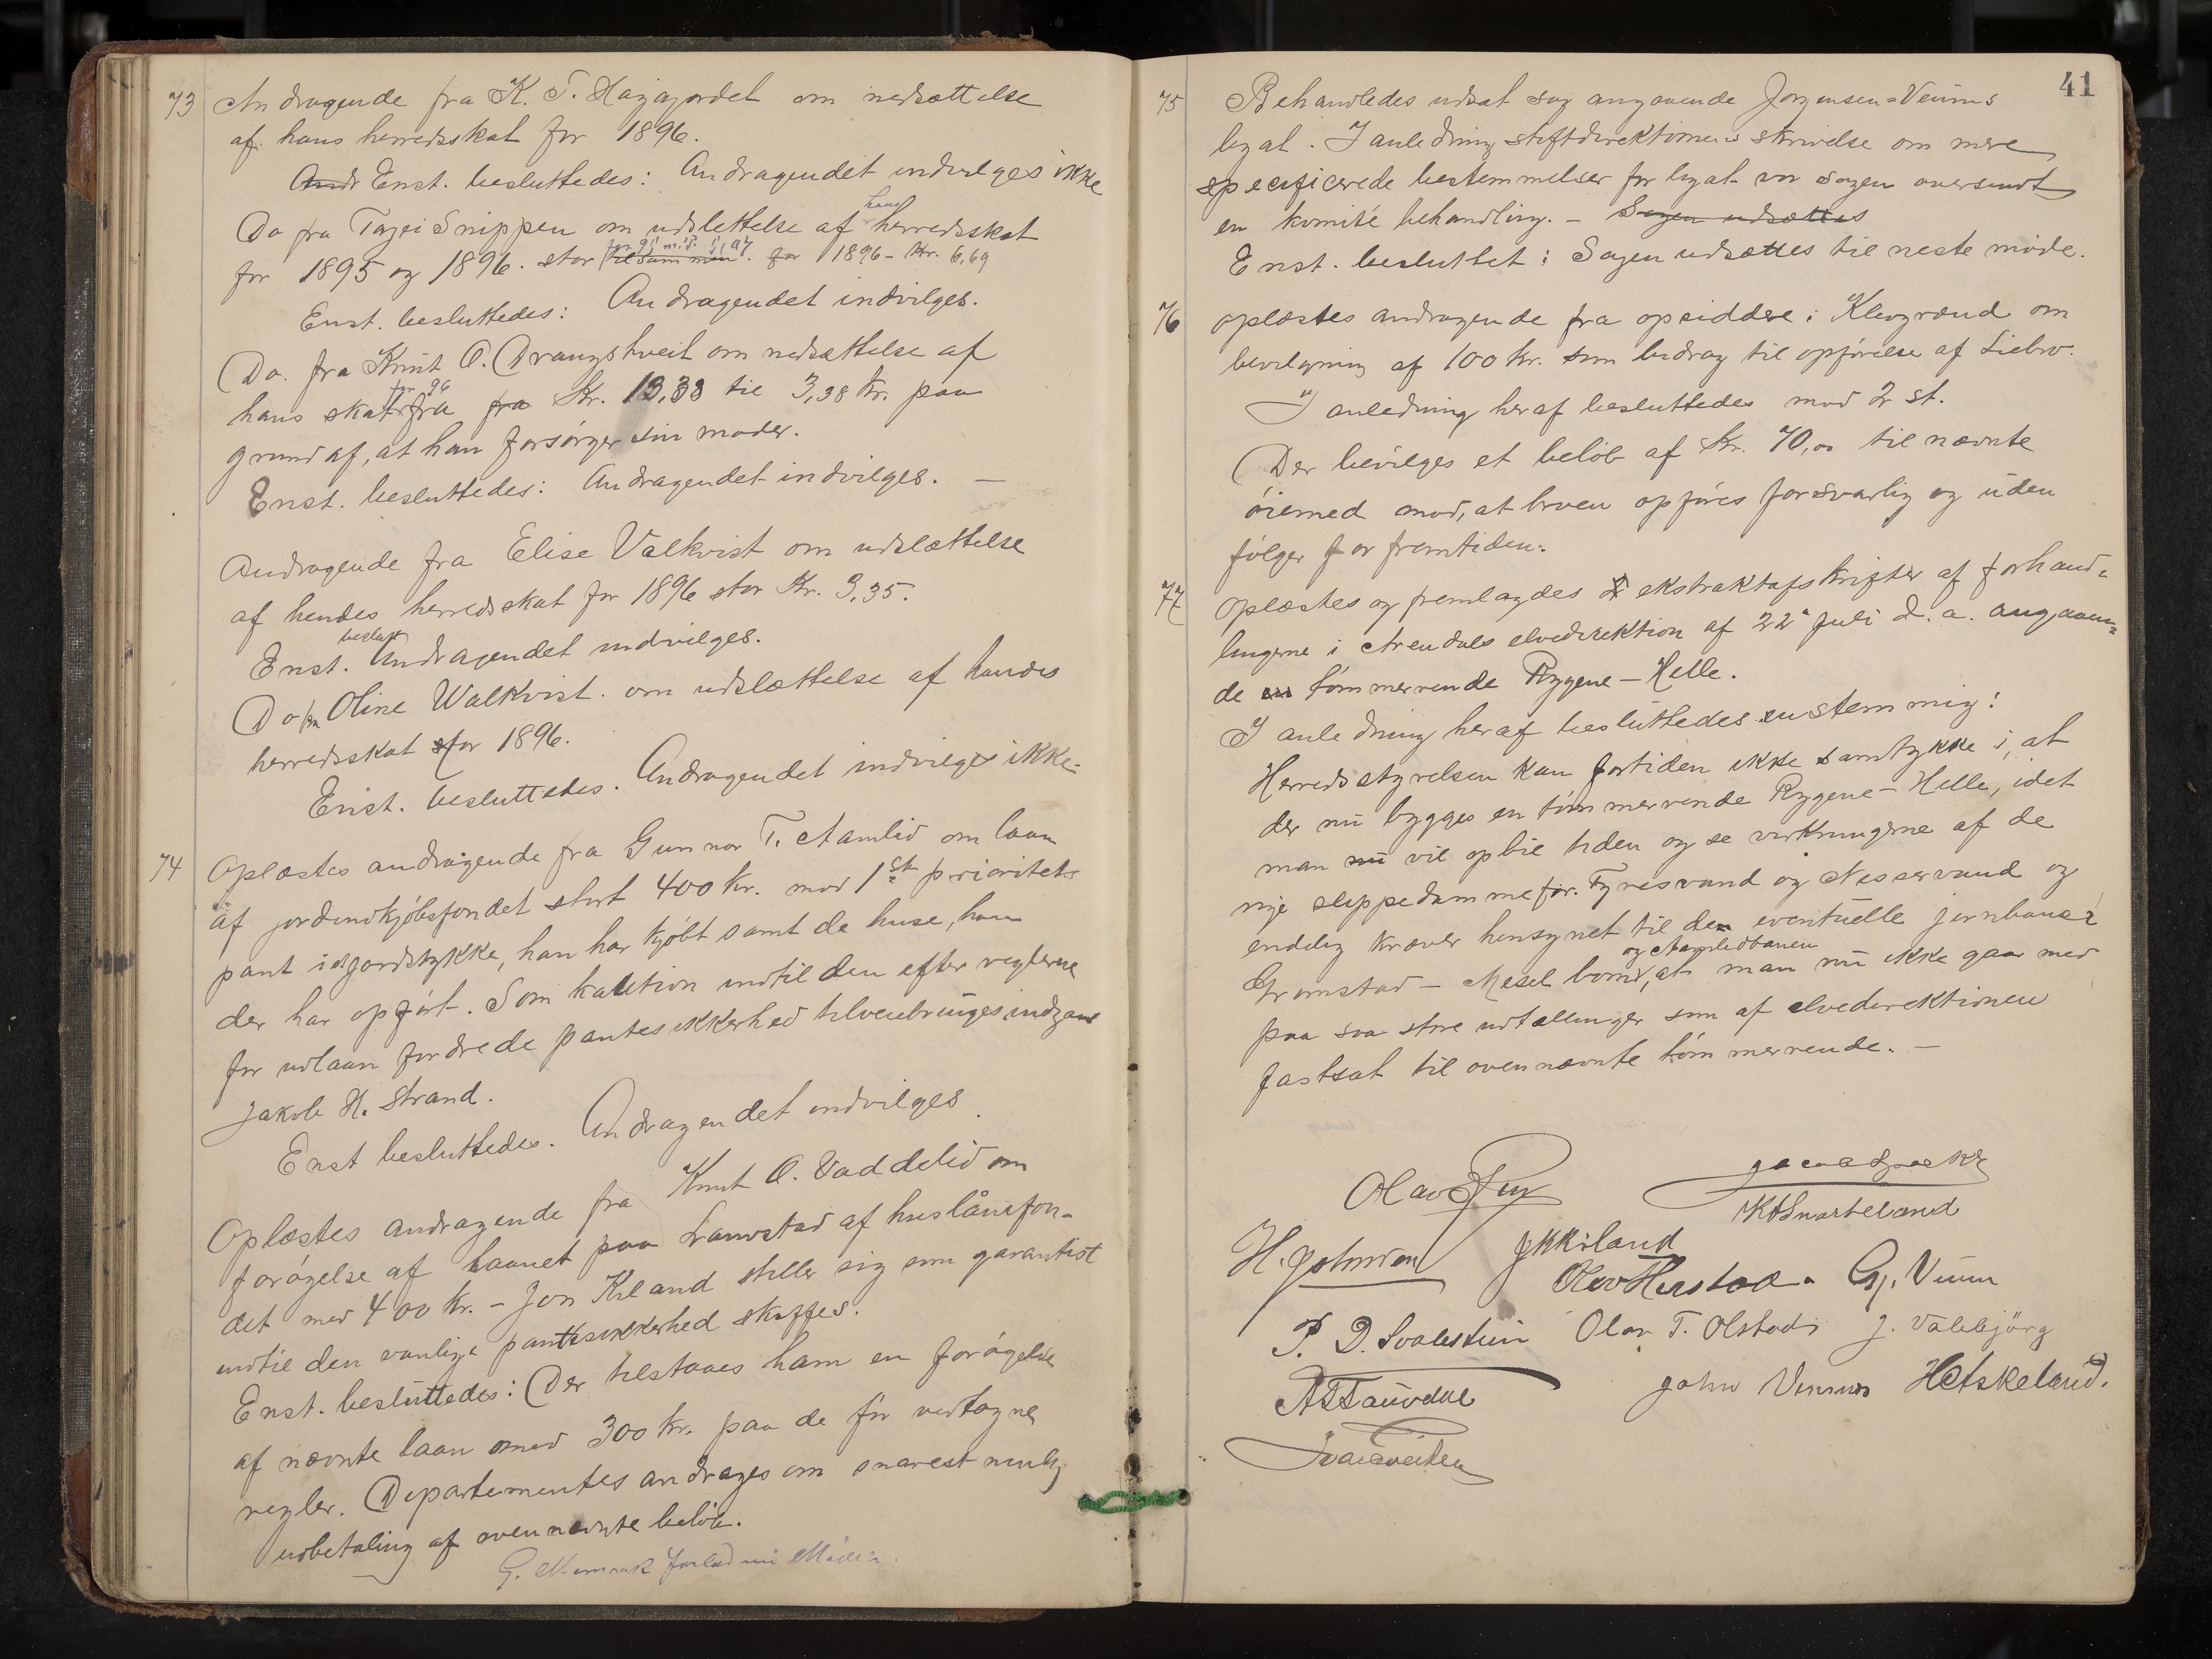 73 Andragende fra K. T. Hagagjordet om nedsættelse
af hans herredsskat for 1896.
Andr Enst. besluttedes: Andragendet indvilges ikke
Do fra Tajei Snippen om udslettelse af hans herredsskat
for 1895 og 1896. stor tilsammen. for 1896 - Kr. 6,69
Enst. besluttedes: Andragendet indvilges.
Do. fra Knut O. Drangshveit om nedsættelse af
hans skat for 96 fra fra Kr. 13,38 til 3,38 kr. paa
grund af, at han forsørger sin moder.
Enst. besluttedes: Andragendet indvilges. —
Andragende fra Elise Valkvist om udslættelse
af hendes herredsskat for 1896 stor Kr. 3,35.
Enst. beslutt Andragendet indvilges.
Do fra Oline Walkvist. om udslættelse af hendes
herredsskat for 1896.
Enst. besluttedes. Andragendet indvilges ikke.
74 Oplæstes andragende fra Gunnar T. Aamlid om laan
af jordindkjøbsfondet stort 400 kr. mod 1ste prioritets
pant i et jordstykke, han har kjøbt samt de huse, han
der har opført. Som kaution indtil den efter reglerne
for udlaan fordrede pantesikkerhed tilveiebringes indgaar
Jakob H. Strand.
Enst besluttedes. Andragendet indvilges.
Oplæstes andragende fra Knut O. Vaddelid om
forøgelse af laanet paa Lauvstad af huslånsfon-
det med 400 kr. - Jon Kiland stiller sig som garantist
indtil den vanlige pantesikkerhed skaffes.
Enst. besluttedes: Der tilstaaes ham en forøgelse
af nævnte laan med 300 kr. paa de før vedtagne
regler. Departementes andrages om snarest mulig
udbetaling af ovennævnte beløb.
G. forlod nu Mødet.
41
75 Behandledes udsat sag angaaende Jørgensen=Veums
legat. I anledning stiftdirektionens skrivelse om mere
specificerede bestemmelser for legat var sagen oversendt
en komité behandling. - Sagen udsættes
Enst. besluttet: Sagen udsættes til neste møde.
76 oplæstes andragende fra opsiddere i Klevgrænd om
bevilgning af 100 kr. som bidrag til opførelse af Liebro.
I anledning heraf besluttedes mod 2 st.
Der bevilges et beløb af Kr. 70,00 til nævnte
øiemed mod, at broen opføres forsvarlig og uden
følger for fremtiden.
77 Oplæstes og fremlagdes 2 ekstraktafskrifter af forhand-
lingerne i Arendals elvedirektion af 22de Juli d. a. angaaen-
de en tømmerrende Rygene - Helle.
I anledning heraf besluttedes enstemmig:
Herredsstyrelsen kan fortiden ikke samtykke i, at
der nu bygges en tømmerrende Rygene - Helle, idet
man nu vil opbie tiden og se virkningerne af de
nye slippedamme for Fyresvand og Nisservand og
endelig kræver hensynet til den eventuelle jernbane
Grimstad - Mesel bane og Aamlidbanen, at man nu ikke gaar med
paa saa store udtællinger som af elvedirektionen
fastsat til ovennævnte tømmerrende. —
K Snarteland
H. Johnsen JKKiland
Olav Herstad. Gj. Veum
P. D. Svalestuen Olav T. Olstad J. Valebjørg
A T Tauvdal John Veum H Etskeland.
Ivar Tveiten